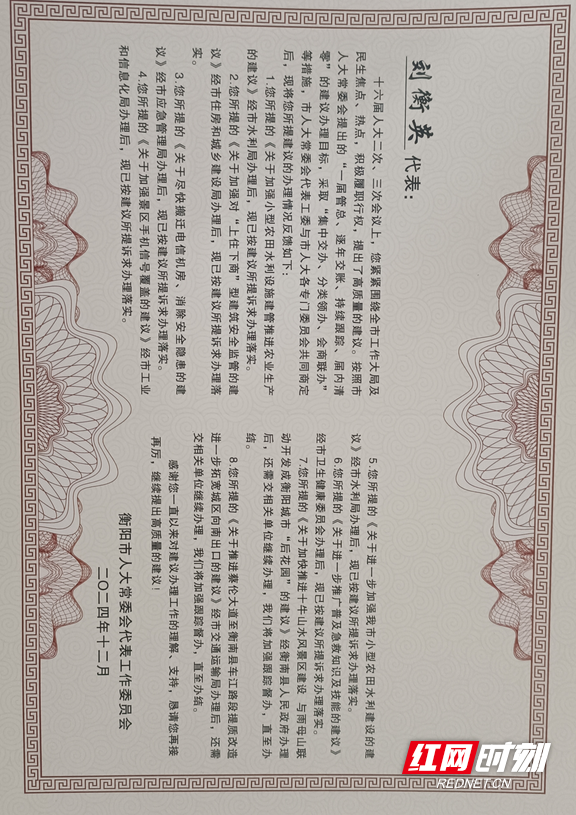 刘衡英代表：
十六届人大二次、三次会议上，您紧紧围绕全市工作大局及
民生焦点、热点，积极履职行权，提出了高质量的建议。按照市
人大常委会提出的“一届管总、逐年交账、持续跟踪、届内清
零”的建议办理目标，采取“集中交办、分类领办、会商联办”
等措施，市人大常委会代表工委与市人大各专门委员会共同商定
后，现将您所提建议的办理情况反馈如下：
1.您所提的《关于加强小型农田水利设施建管推进农业生产
的建议》经市水利局办理后，现已按建议所提诉求办理落实。
2.您所提的《关于加强对“上住下商”型建筑安全监管的建
议》经市住房和城乡建设局办理后，现已按建议所提诉求办理落
实。
3.您所提的《关于尽快搬迁电信机房、消除安全隐患的建
议》经市应急管理局办理后，现已按建议所提诉求办理落实。
4.您所提的《关于加强景区手机信号覆盖的建议》经市工业
和信息化局办理后，现已按建议所提诉求办理落实。
5.您所提的《关于进一步加强我市小型农田水利建设的建
议》经市水利局办理后，现已按建议所提诉求办理落实。
6.您所提的《关于进一步推广普及急救知识及技能的建议》
经市卫生健康委员会办理后，现已按建议所提诉求办理落实。
7.您所提的《关于加快推进十牛山水风景区建设 与雨母山联
动开发成衡阳城市“后花园”的建议》经衡南县人民政府办理
后，还需交相关单位继续办理，我们将加强跟踪督办，直至办
结。
8.您所提的《关于推进蔡伦大道至衡南县车江路段提质改造
进一步拓宽城区向南出口的建议》经市交通运输局办理后，还需
交相关单位继续办理，我们将加强跟踪督办，直至办结。
感谢您一直以来对建议办理工作的理解、支持，恳请您再接
再厉，继续提出高质量的建议！
衡阳市人大常委会代表工作委员会
二〇二四年十二月
红网时刻
REDNET.CN